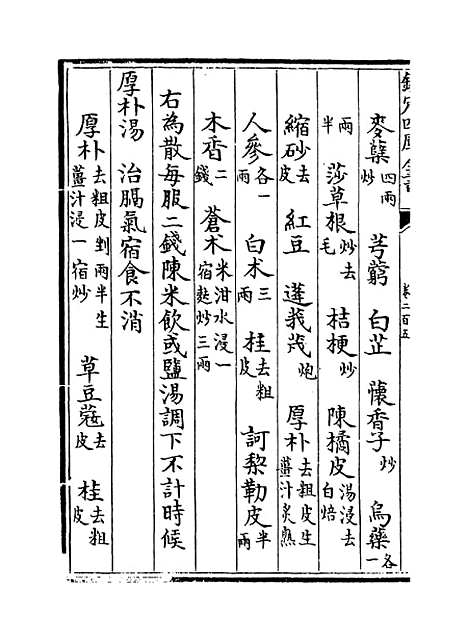 欽定四庫全書
卷二百五
麥糵四兩炒 芎藭 白芷 懷香子炒 烏藥各一
兩半 莎草根炒去毛 桔梗炒 陳橘皮湯浸去白焙
縮砂去皮 紅豆 蓬莪茂炮 厚朴去粗皮生薑汁炙熟
人參各一兩 白朮三兩 桂去粗皮 訶黎勒皮半兩
木香二錢 蒼朮米泔水浸一宿麩炒三兩
右為散每服二錢陳米飲或鹽湯調下不計時候
厚朴湯 治膈氣宿食不消
厚朴去粗皮剉兩半生薑汁浸一宿炒 草豆蔻去皮 桂去粗皮